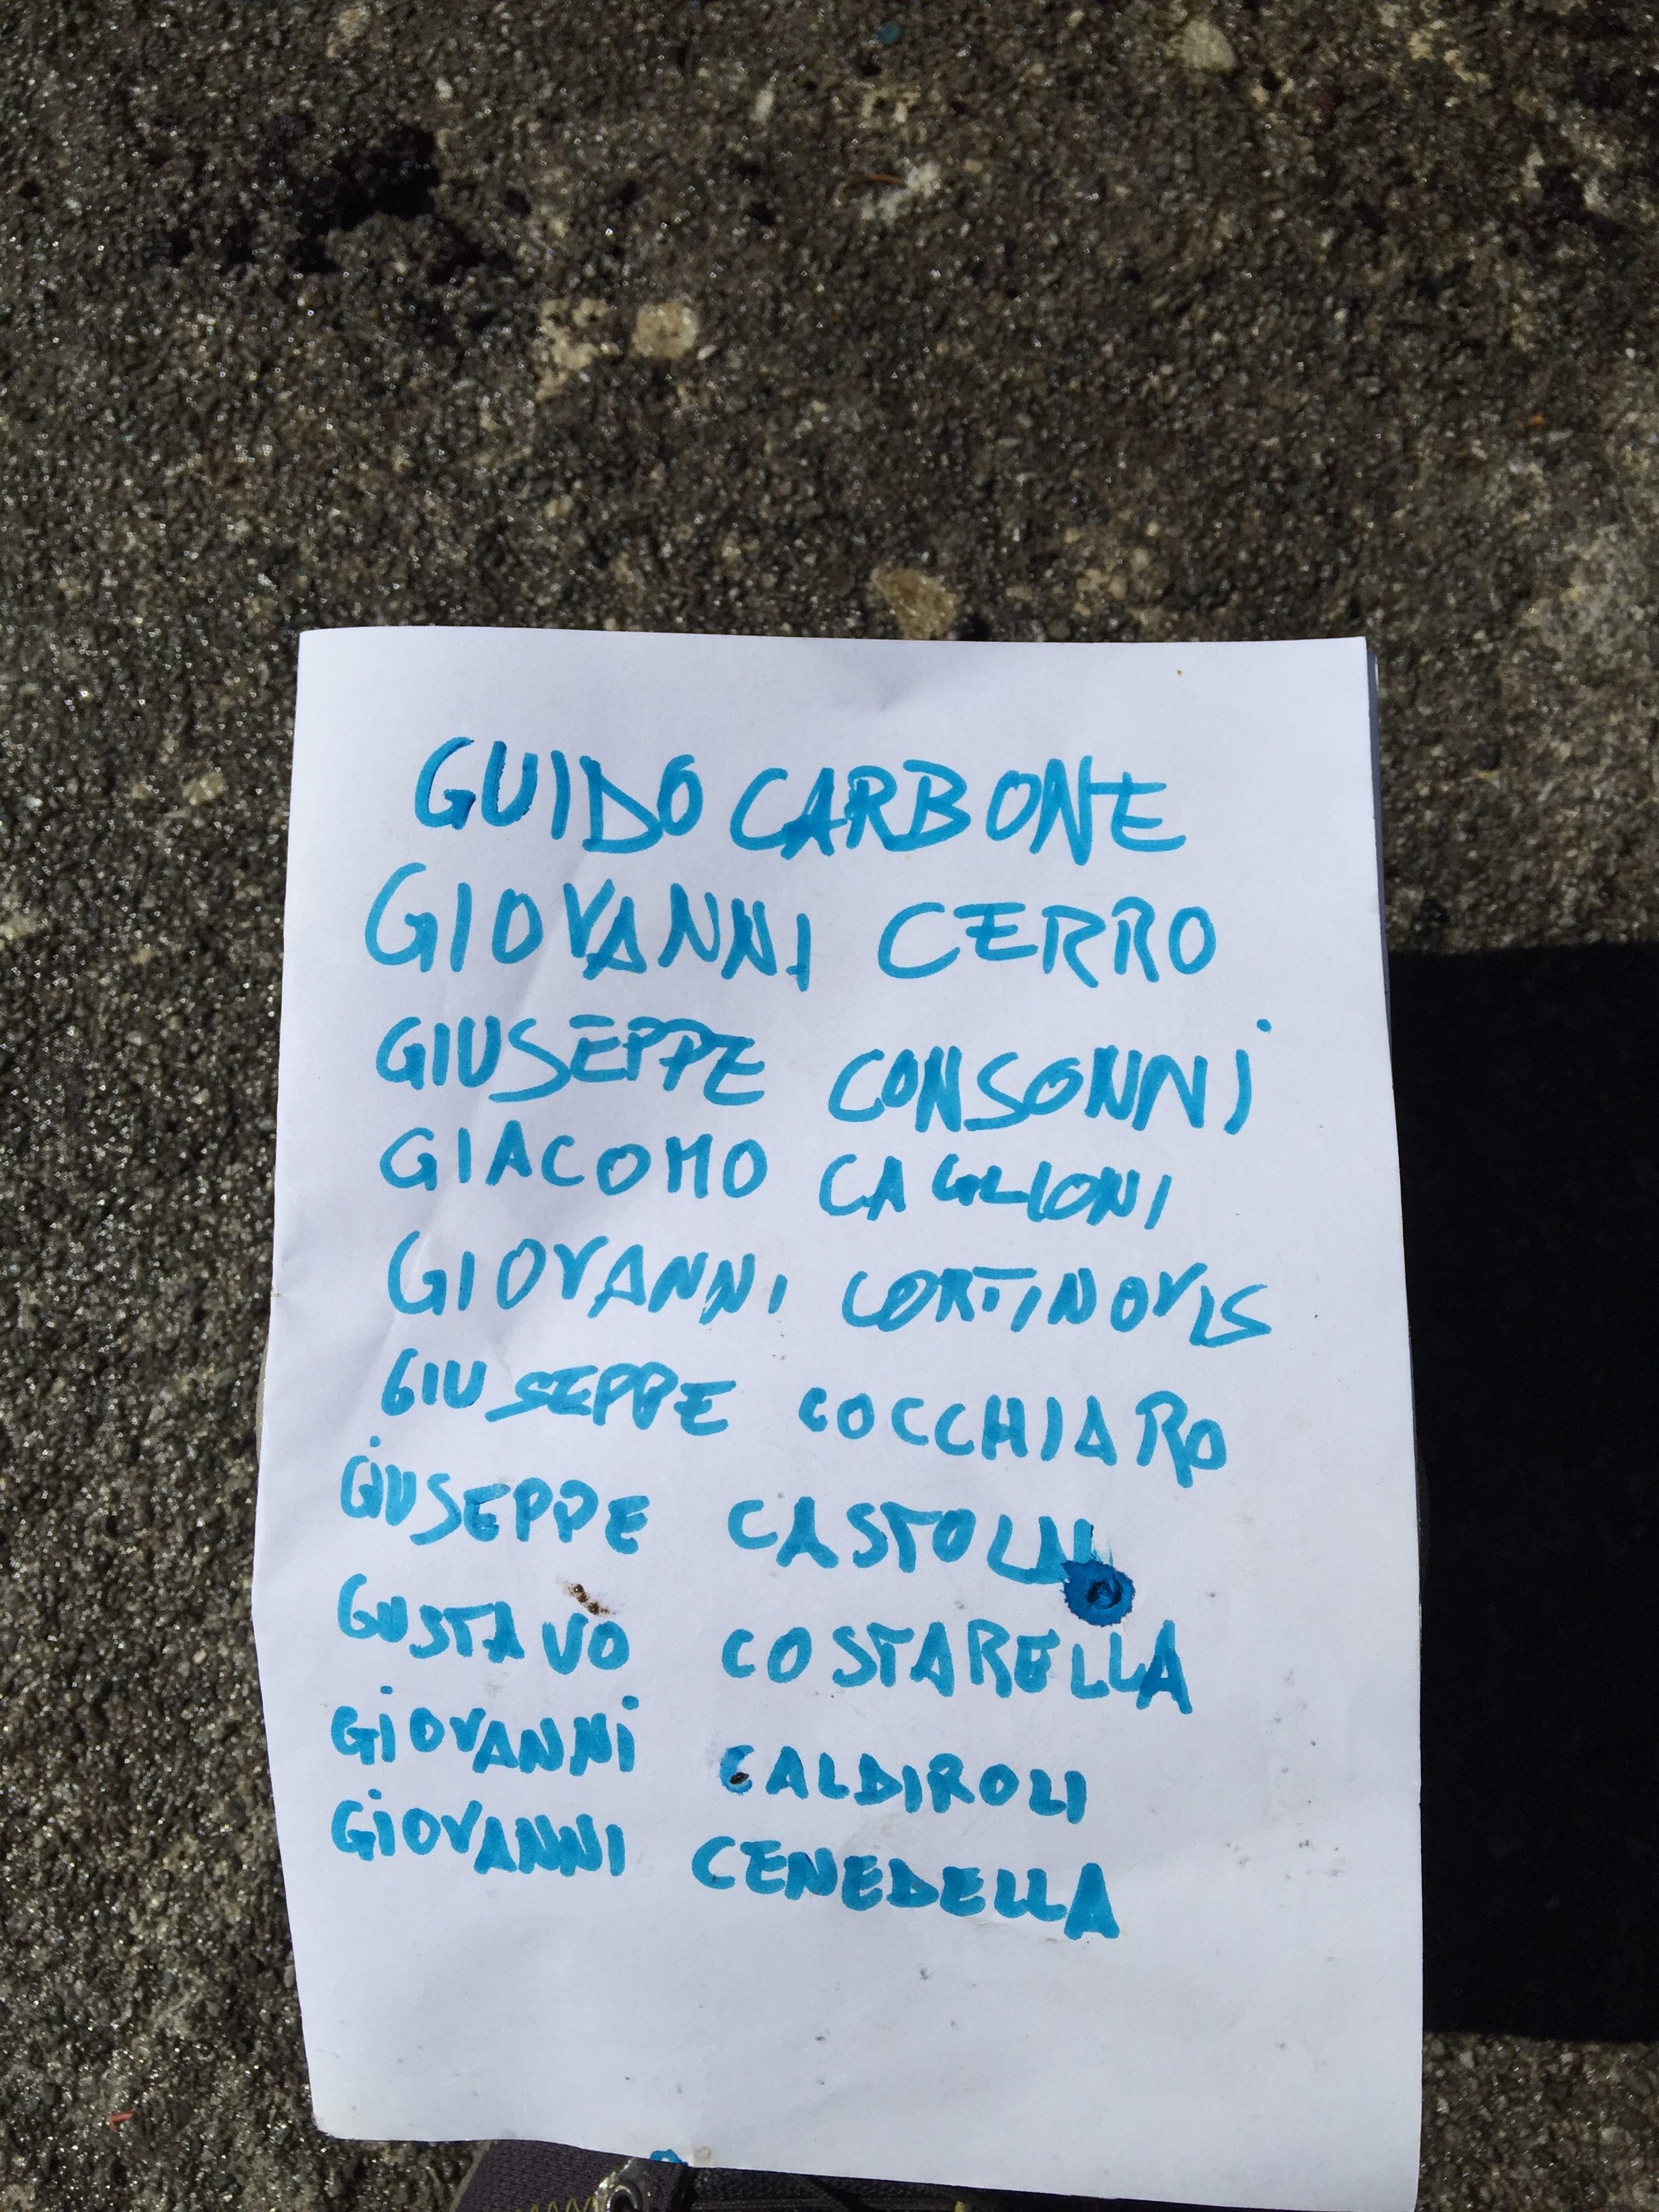 GUIDO CARBONE
GIOVANNI CERRO
GIUSEPPE CONSONNI
GIACOMO CAGLIONI
GIOVANNI CORTINOVIS
GIUSEPPE COCCHIARO
GIUSEPPE
GUSTAVO COSTARELLA
GIOVANNI CALDIROLI
GIOVANNI CENEDELLA